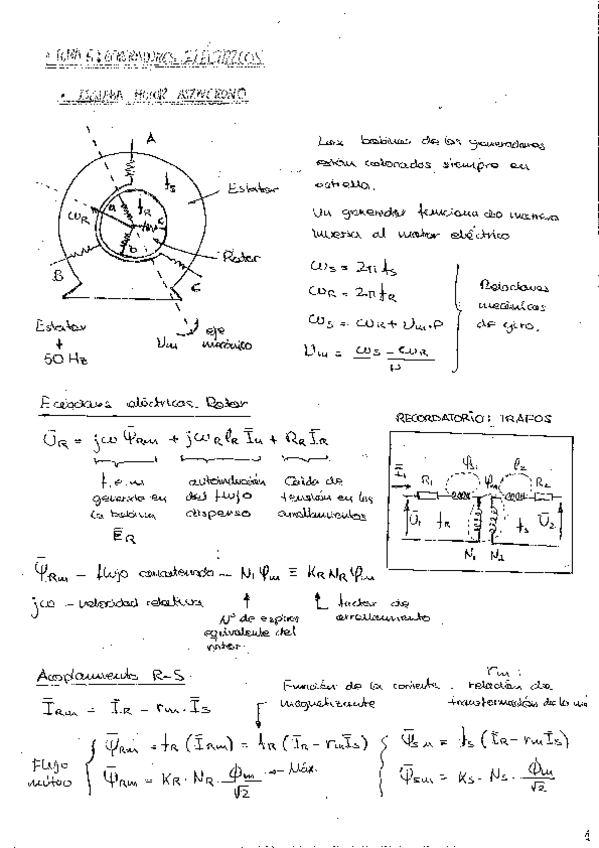 TEMA 5: GENERADORES ELÉCTRICOS
• ESQUEMA MOTOR ASÍNCRONO
A
fs
Estator
ωR
a
fR
c
b
Rotor
B
C
Estator
+
50 Hz
Um
eje
mecánico
Las bobinas de los generadores
están colocados siempre en
estrella.
Un generador funciona de manera
inversa al motor eléctrico
ωs = 2πfs
ωR = 2πfR
ωs = ωR + Um·P
Um = (ωs - ωR)/P
Relaciones
mecánicas
de giro.
Ecuaciones eléctricas Rotor
ŪR = jω Ψ̄Rm + jωR ℓR ĪR + RR ĪR
f.e.m
generada en
la bobina
ĒR
autoinducción
del flujo
disperso
Caída de
tensión en los
arrollamientos
RECORDATORIO: TRAFOS
Ī1
R1
R2
Ū1
fR
fs
Ū2
N1
N2
Ψ̄Rm – flujo concatenado – N1 φm ≡ KR NR φm
jω – velocidad relativa
Nº de espiras
equivalente del
rotor.
factor de
arrollamiento
Acoplamiento R-S
ĪRm = ĪR - rm·ĪS
Función de la corriente
magnetizante
rm:
relación de
transformación de la
Flujo
mútuo
Ψ̄Rm = fR (ĪRm) = fR (ĪR - rmĪS)
Ψ̄Rm = KR·NR·Φm/√2 → Máx.
Ψ̄Sm = fs (ĪR - rmĪS)
Ψ̄Sm = KS·NS·Φm/√2
1